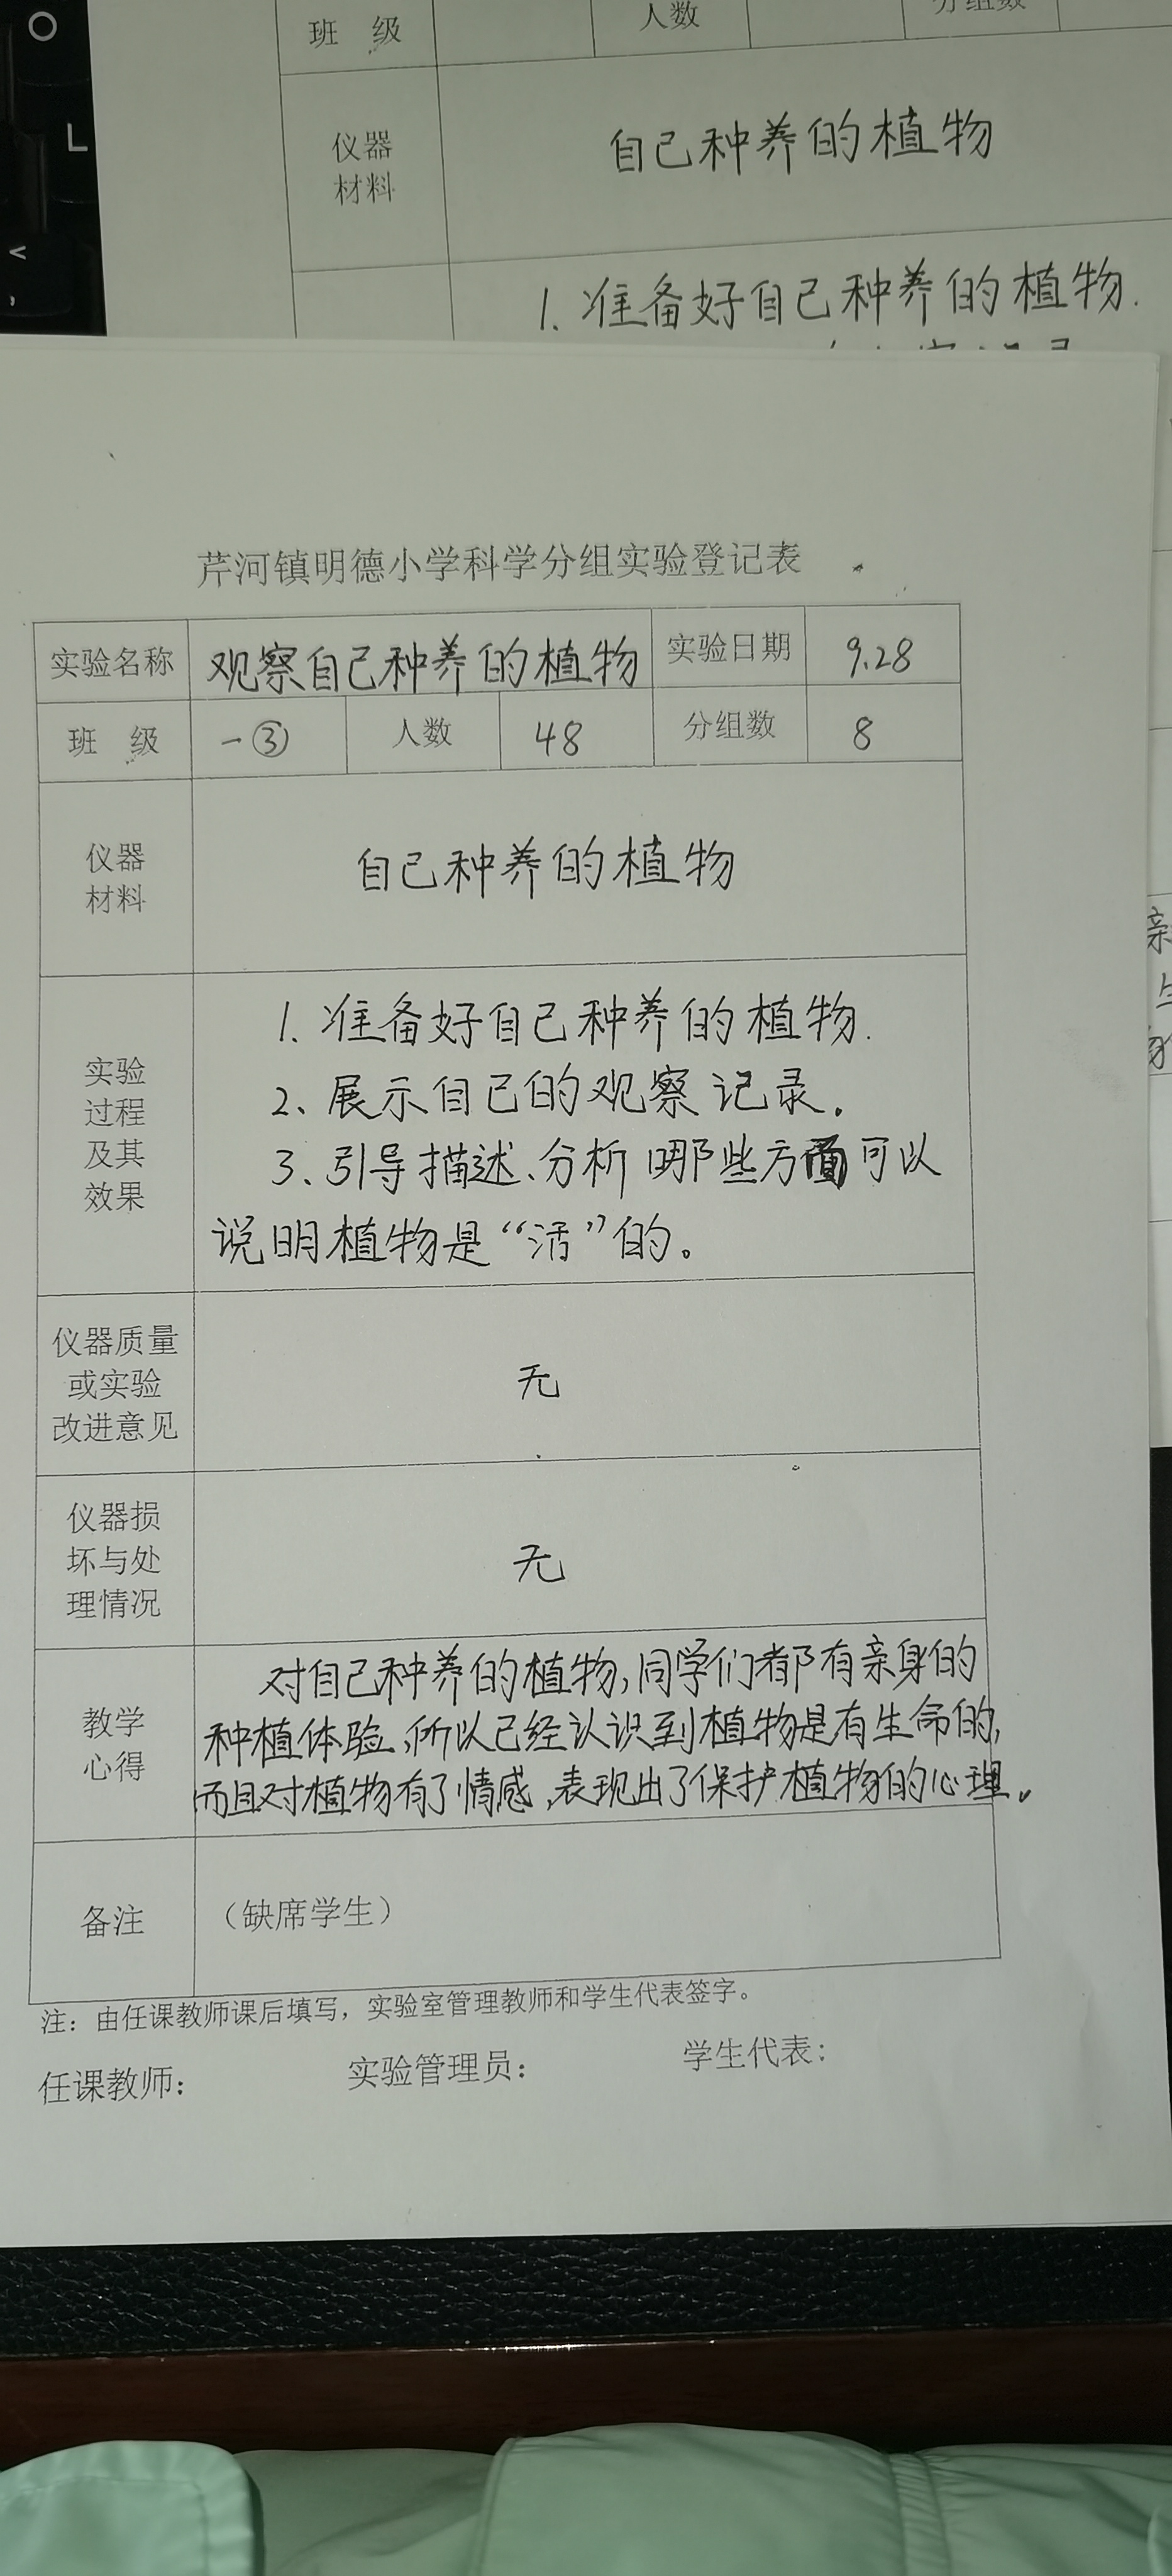 O
L
<
,
班 级
人数
分组数
仪器
材料
自己种养的植物
1. 准备好自己种养的植物.
芹河镇明德小学科学分组实验登记表
实验名称 观察自己种养的植物 实验日期 9.28
班 级 一③ 人数 48 分组数 8
仪器
材料
自己种养的植物
实验
过程
及其
效果
1. 准备好自己种养的植物.
2、展示自己的观察记录。
3、引导描述、分析哪些方面可以
说明植物是“活”的。
仪器质量
或实验
改进意见
无
仪器损
坏与处
理情况
无
教学
心得
对自己种养的植物,同学们都有亲身的
种植体验,所以已经认识到植物是有生命的,
而且对植物有了情感,表现出了保护植物的心理。
备注
（缺席学生）
注：由任课教师课后填写，实验室管理教师和学生代表签字。
任课教师：
实验管理员：
学生代表：